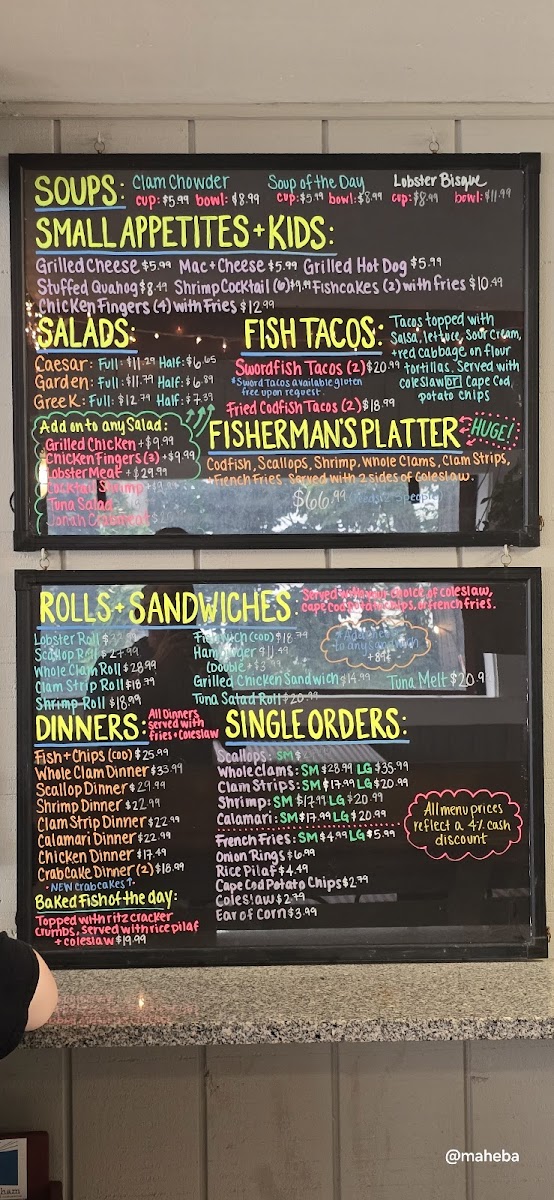 SOUPS: Clam Chowder Soup of the Day Lobster Bisque
cup: $5.99 bowl: $8.99 cup: $5.99 bowl: $8.99 cup: $8.99 bowl: $11.99
SMALL APPETITES + KIDS:
Grilled Cheese $5.99 Mac + Cheese $5.99 Grilled Hot Dog $5.99
Stuffed Quahog $8.49 Shrimp Cocktail (6) Fishcakes (2) with fries $10.49
Chicken Fingers (4) with Fries $12.99
SALADS:
Caesar: Full: Half:
Garden: Full: $11.79 Half: $6.89
Greek: Full: $12.79 Half: $7.39
Add on to any Salad:
Grilled Chicken + $9.99
Chicken Fingers (3) + $9.99
Lobster Meat + $29.99
Cocktail Shrimp
Tuna Salad
Jonah Crabmeat
FISH TACOS:
Tacos topped with
Salsa, lettuce, Sour Cream,
+ red cabbage, on flour
tortillas. Served with
coleslaw OR Cape Cod
potato chips
Swordfish Tacos (2) $20.99
*Sword Tacos available gluten
free upon request.
Fried Codfish Tacos (2) $18.99
FISHERMAN'S PLATTER HUGE!
Codfish, Scallops, Shrimp, Whole Clams, Clam Strips,
+ French Fries. Served with 2 sides of Coleslaw.
$66.99 people
ROLLS + SANDWICHES: Served with your choice of coleslaw,
Cape Cod Potato chips, or french fries.
Lobster Roll
Scallop Roll $27.99
Whole Clam Roll $28.99
Clam Strip Roll $18.99
Shrimp Roll $18.99
(COD) $18.99
Hamburger $11.49
(Double
Grilled Chicken Sandwich $14.99 Tuna Melt $20.9
Tuna Salad Roll $20.99
to any Sandwich
DINNERS: All Dinners
served with
fries + Coleslaw
Fish + Chips (COD) $25.99
Whole Clam Dinner $33.99
Scallop Dinner $29.99
Shrimp Dinner $22.99
Clam Strip Dinner $22.99
Calamari Dinner $22.99
Chicken Dinner $17.49
Crabcake Dinner (2) $18.99
• NEW crabcakes ↑ •
Baked Fish of the day:
Topped with ritz cracker
crumbs, served with rice pilaf
+ coleslaw $19.99
SINGLE ORDERS:
Scallops: SM $
Whole Clams: SM $28.99 LG $35.99
Clam Strips: SM $17.99 LG $20.99
Shrimp: SM $17.99 LG $20.99
Calamari: SM $17.99 LG $20.99
French Fries: SM $4.99 LG $5.99
Onion Rings $6.99
Rice Pilaf $4.49
Cape Cod Potato Chips $2.79
Coleslaw $2.79
Ear of Corn $3.99
All menu prices
reflect a 4% cash
discount
ham
@maheba